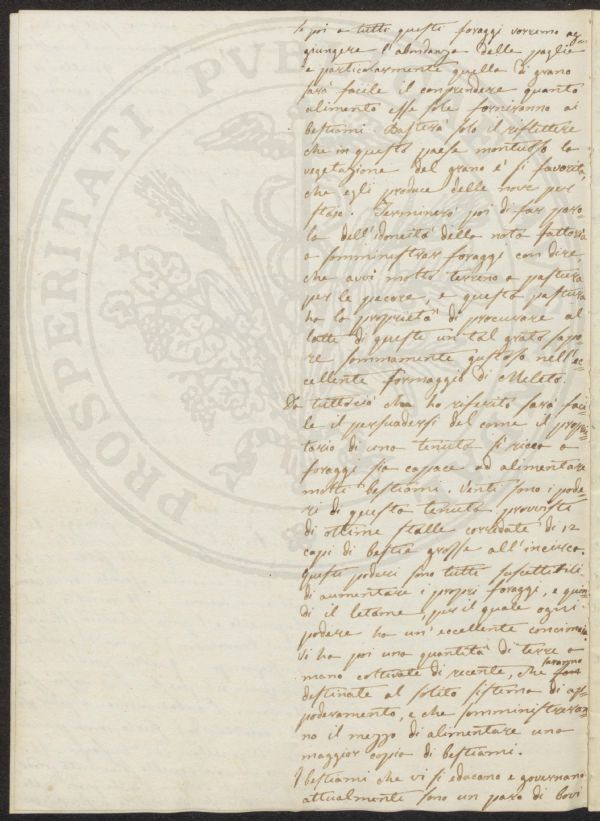 Se poi a tutti questi foraggi vorremo ag-
giungere l'abndanza delle paglie
e particolarmente quella di grano
sarà facile il comprendere quanto
alimento esse sole forniranno ai
bestiami. Basterà solo il riflettere
che in questo paese montuoso la
vegetazione del grano è sì favorita,
che egli produce delle nove per
staio. Terminerò poi di far paro-
la dell'idoneità della nota fattoria
a somministrar foraggi con dire,
che avvi molto terreno a pastura
per le pecore, e questa pastura
ha la proprietà di procurare al
latte di queste un tal grato sapo-
re sommamente gustoso nell'ec-
cellente formaggio di Meleto.
Da tuttociò che ho riferito sarà faci-
le il persuadersi del come il proprie-
tario di una tenuta sì ricca a
foraggi sia capace ad alimentare
molti bestiami. Venti sono i pode-
ri di questa tenuta provvisti
di ottime stalle corredate di 12
capi di bestie grosse all'incirca.
Questi poderi sono tutti suscettibili
di aumentare i propri foraggi, e quin-
di il letame per il quale ogni
podere ha un'eccellente concimaia.
Vi ha poi una quantità di terre a
mano coltivate di recente, che saranno
destinate al solito sistema di ap-
poderamento, e che somministreran-
no il mezzo di alimentare una
maggior copia di bestiami.
I bestiami che vi si educano e governano
attualmente sono un paro di bovi
PROSPERITATI PVB